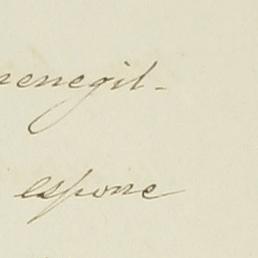 renegil-
espone